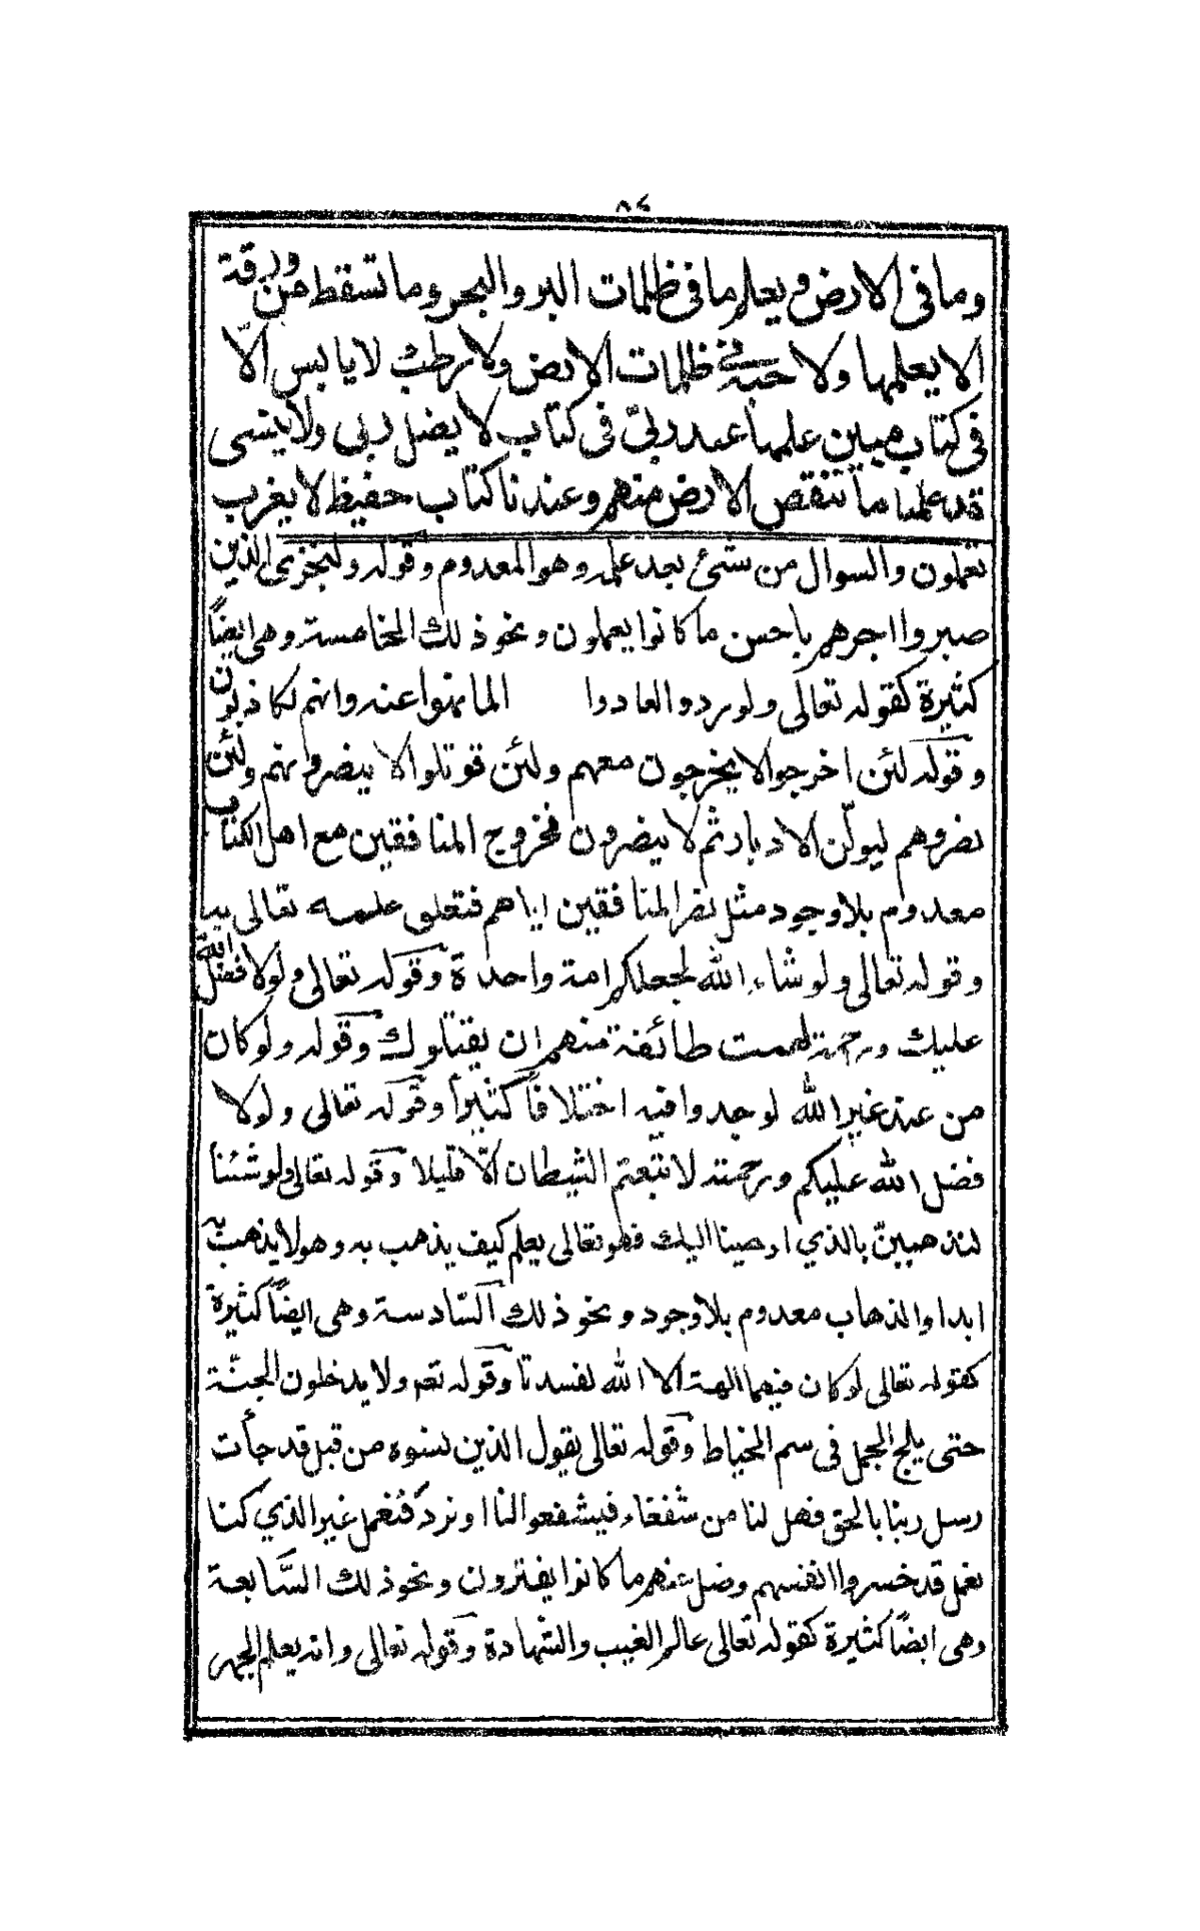 ٨٤
وما في الارض ويعلم ما في ظلمات البر والبحر وما تسقط من ورقة
الا يعلمها ولا حبة في ظلمات الارض ولا رطب لا يابس الّا
في كتاب مبين علمها عند ربّي في كتاب لا يضل ربي ولا ينسى
قد علمنا ما تنقص الارض منهم وعندنا كتاب حفيظ لا يغرب
تعملون والسوال من شئ بعد علمه وهو المعدوم وقوله ولنجزى الذين
صبروا اجرهم باحسن ما كانوا يعملون ونحو ذلك الخامسة وهى ايضًا
كثيرة كقوله تعالى ولو ردوا لعادوا لما نهوا عنه وانهم لكاذبون
وقوله لئن اخرجوا لا يخرجون معهم ولئن قوتلوا لا ينصرونهم ولئن
نصروهم ليولّن الادبار ثم لا ينصرون فخروج المنافقين مع اهل الكتاب
معدوم بلا وجود مثل نصر المنافقين اياهم فتعلق علمه تعالى بها
وقوله تعالى ولو شاء الله لجعلكم امة واحدة وقوله تعالى ولولا فضل الله
عليك ورحمته لهمت طائفة منهم ان يقتلوك وقوله ولو كان
من عند غير الله لوجدوا فيه اختلافاً كثيراً وقوله تعالى ولولا
فضل الله عليكم ورحمته لاتبعتم الشيطان الّا قليلا وقوله تعالى ولو شئنا
لنذهبنّ بالذي اوحينا اليك فهو تعالى يعلم كيف يذهب به وهو لا يذهب به
ابدا والذهاب معدوم بلا وجود ونحو ذلك السّادسة وهى ايضًا كثيرة
كقوله تعالى لو كان فيهما الهة الا الله لفسدتا وقوله تعم ولا يدخلون الجنّة
حتى يلج الجمل في سم الخياط وقوله تعالى يقول الذين نسوه من قبل قد جأت
رسل ربنا بالحق فهل لنا من شفعاء فيشفعوا لنا او نردّ فنعمل غير الذي كنا
نعمل قد خسروا انفسهم وضل عنهم ما كانوا يفترون ونحو ذلك السّابعة
وهى ايضًا كثيرة كقوله تعالى عالم الغيب والشهادة وقوله تعالى وانه يعلم الجهر